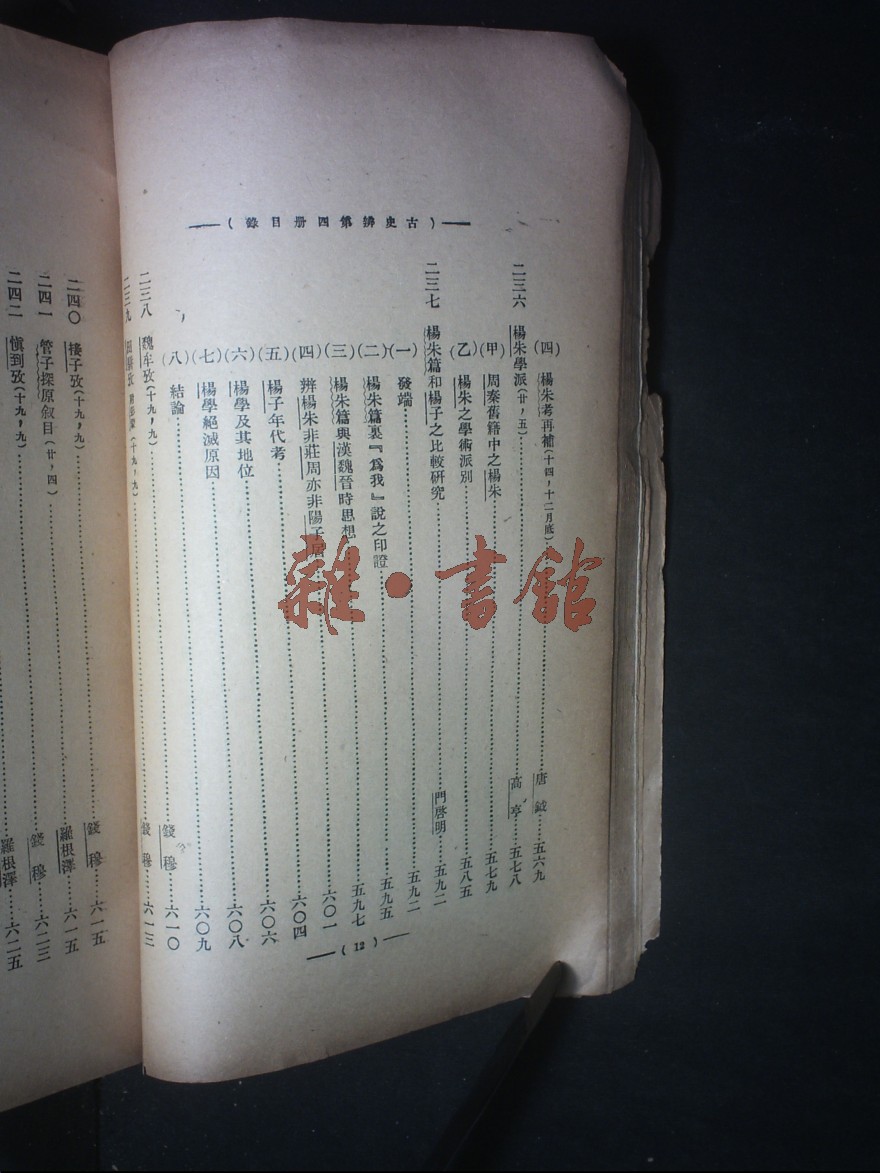 （古史辨第四册目錄）
（四）楊朱考再補（十四，十二月底）……唐鉞……五六九
二三六　楊朱學派（廿，五）……高亨……五七八
（甲）周秦舊籍中之楊朱……五七九
（乙）楊朱之學術派別……五八五
二三七　楊朱篇和楊子之比較研究……門啓明……五九二
（一）發端……五九二
（二）楊朱篇裏『爲我』說之印證……五九五
（三）楊朱篇與漢魏晉時思想……五九七
（四）辨楊朱非莊周亦非陽子居……六〇一
（五）楊子年代考……六〇四
（六）楊學及其地位……六〇六
（七）楊學絕滅原因……六〇八
（八）結論……六〇九
二三八　魏牟攷（十九，九）……錢穆……六一〇
二三九　田駢攷（十九，九）……錢穆……六一三
（12）
二四〇　接子攷（十九，九）……錢穆……六一五
二四一　管子探原叙目（廿，四）……羅根澤……六一五
二四二　慎到攷（十九，九）……錢穆……六二三
羅根澤……六二五
雜·書館